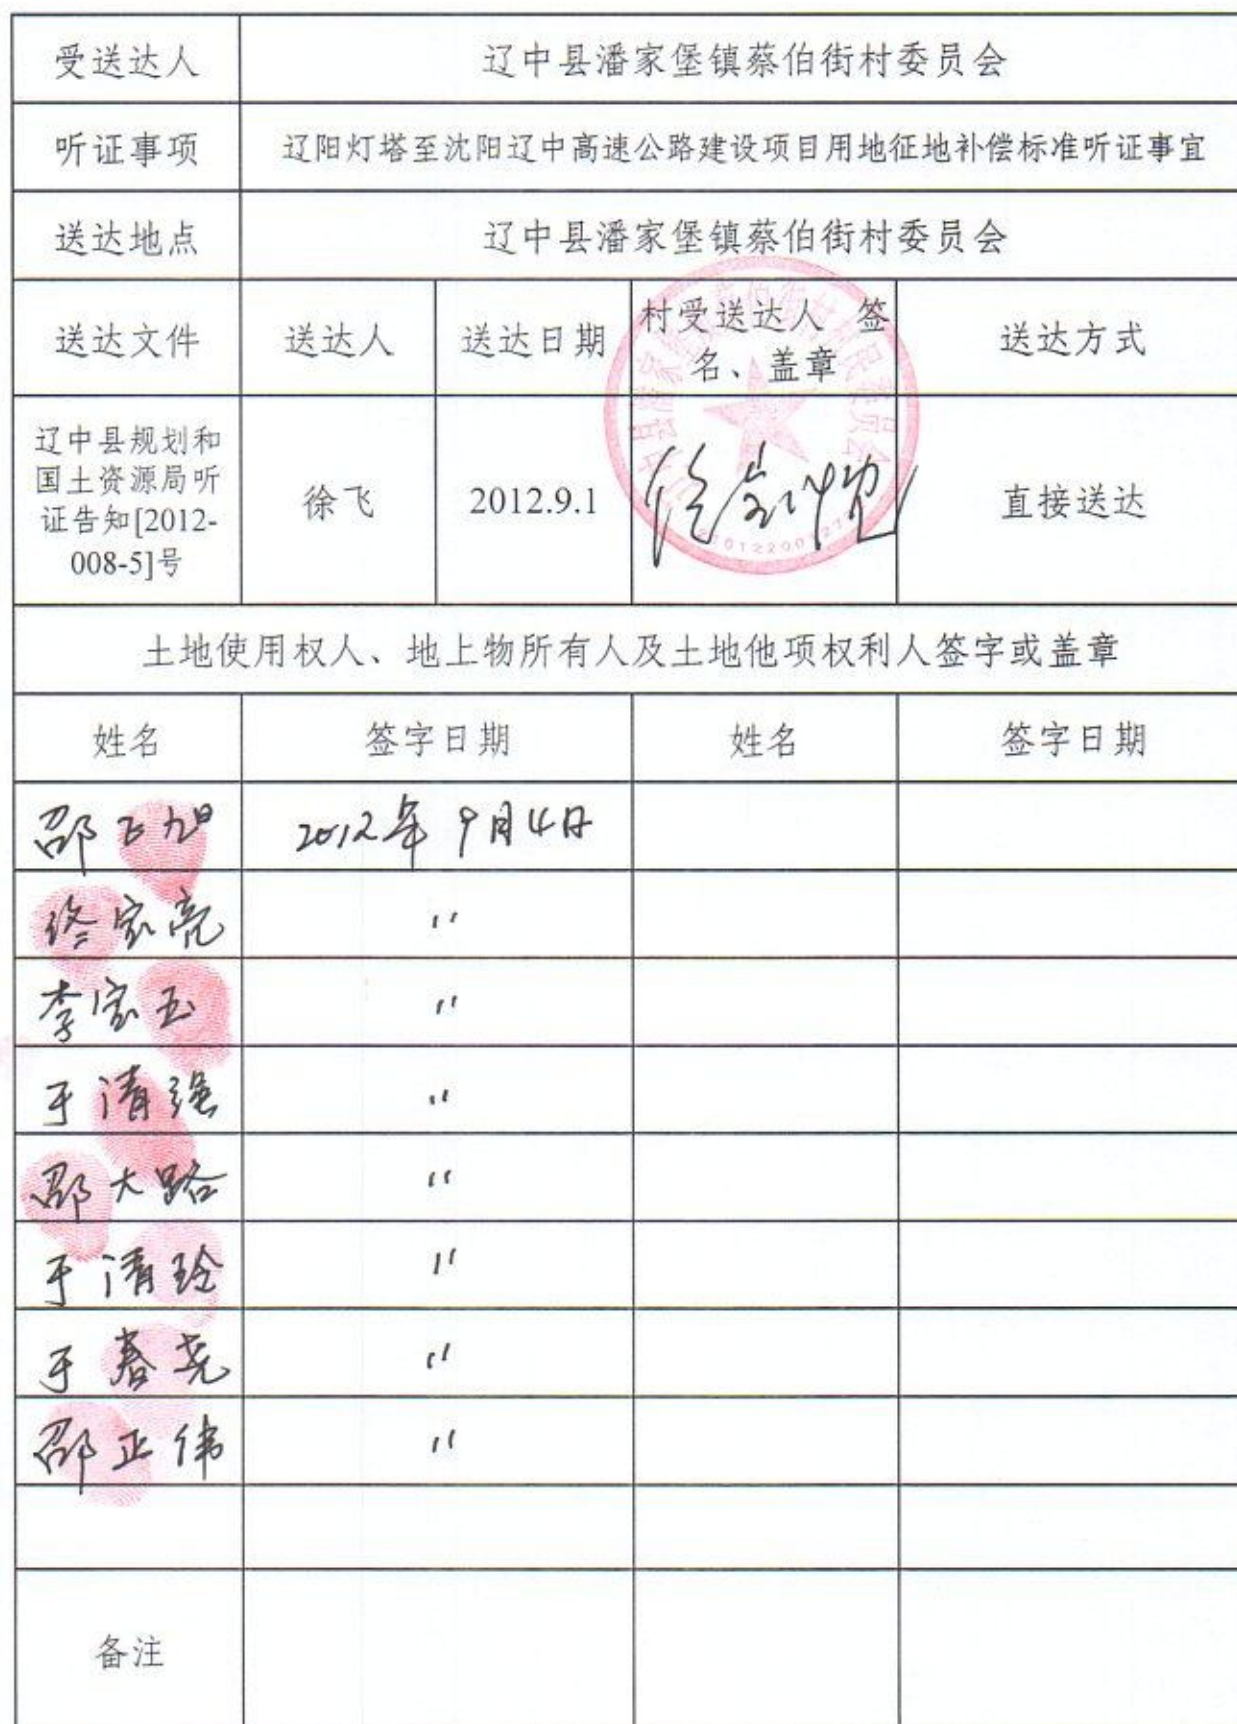 受送达人 辽中县潘家堡镇蔡伯街村委员会
听证事项 辽阳灯塔至沈阳辽中高速公路建设项目用地征地补偿标准听证事宜
送达地点 辽中县潘家堡镇蔡伯街村委员会
送达文件 送达人 送达日期 村受送达人 签
名、盖章 送达方式
辽中县规划和
国土资源局听
证告知[2012-
008-5]号 徐飞 2012.9.1 直接送达
土地使用权人、地上物所有人及土地他项权利人签字或盖章
姓名 签字日期 姓名 签字日期
邵飞旭 2012年9月4日
佟家亮 〃
李家玉 〃
于清强 〃
邵大路 〃
于清玲 〃
于春尧 〃
邵正伟 〃
备注